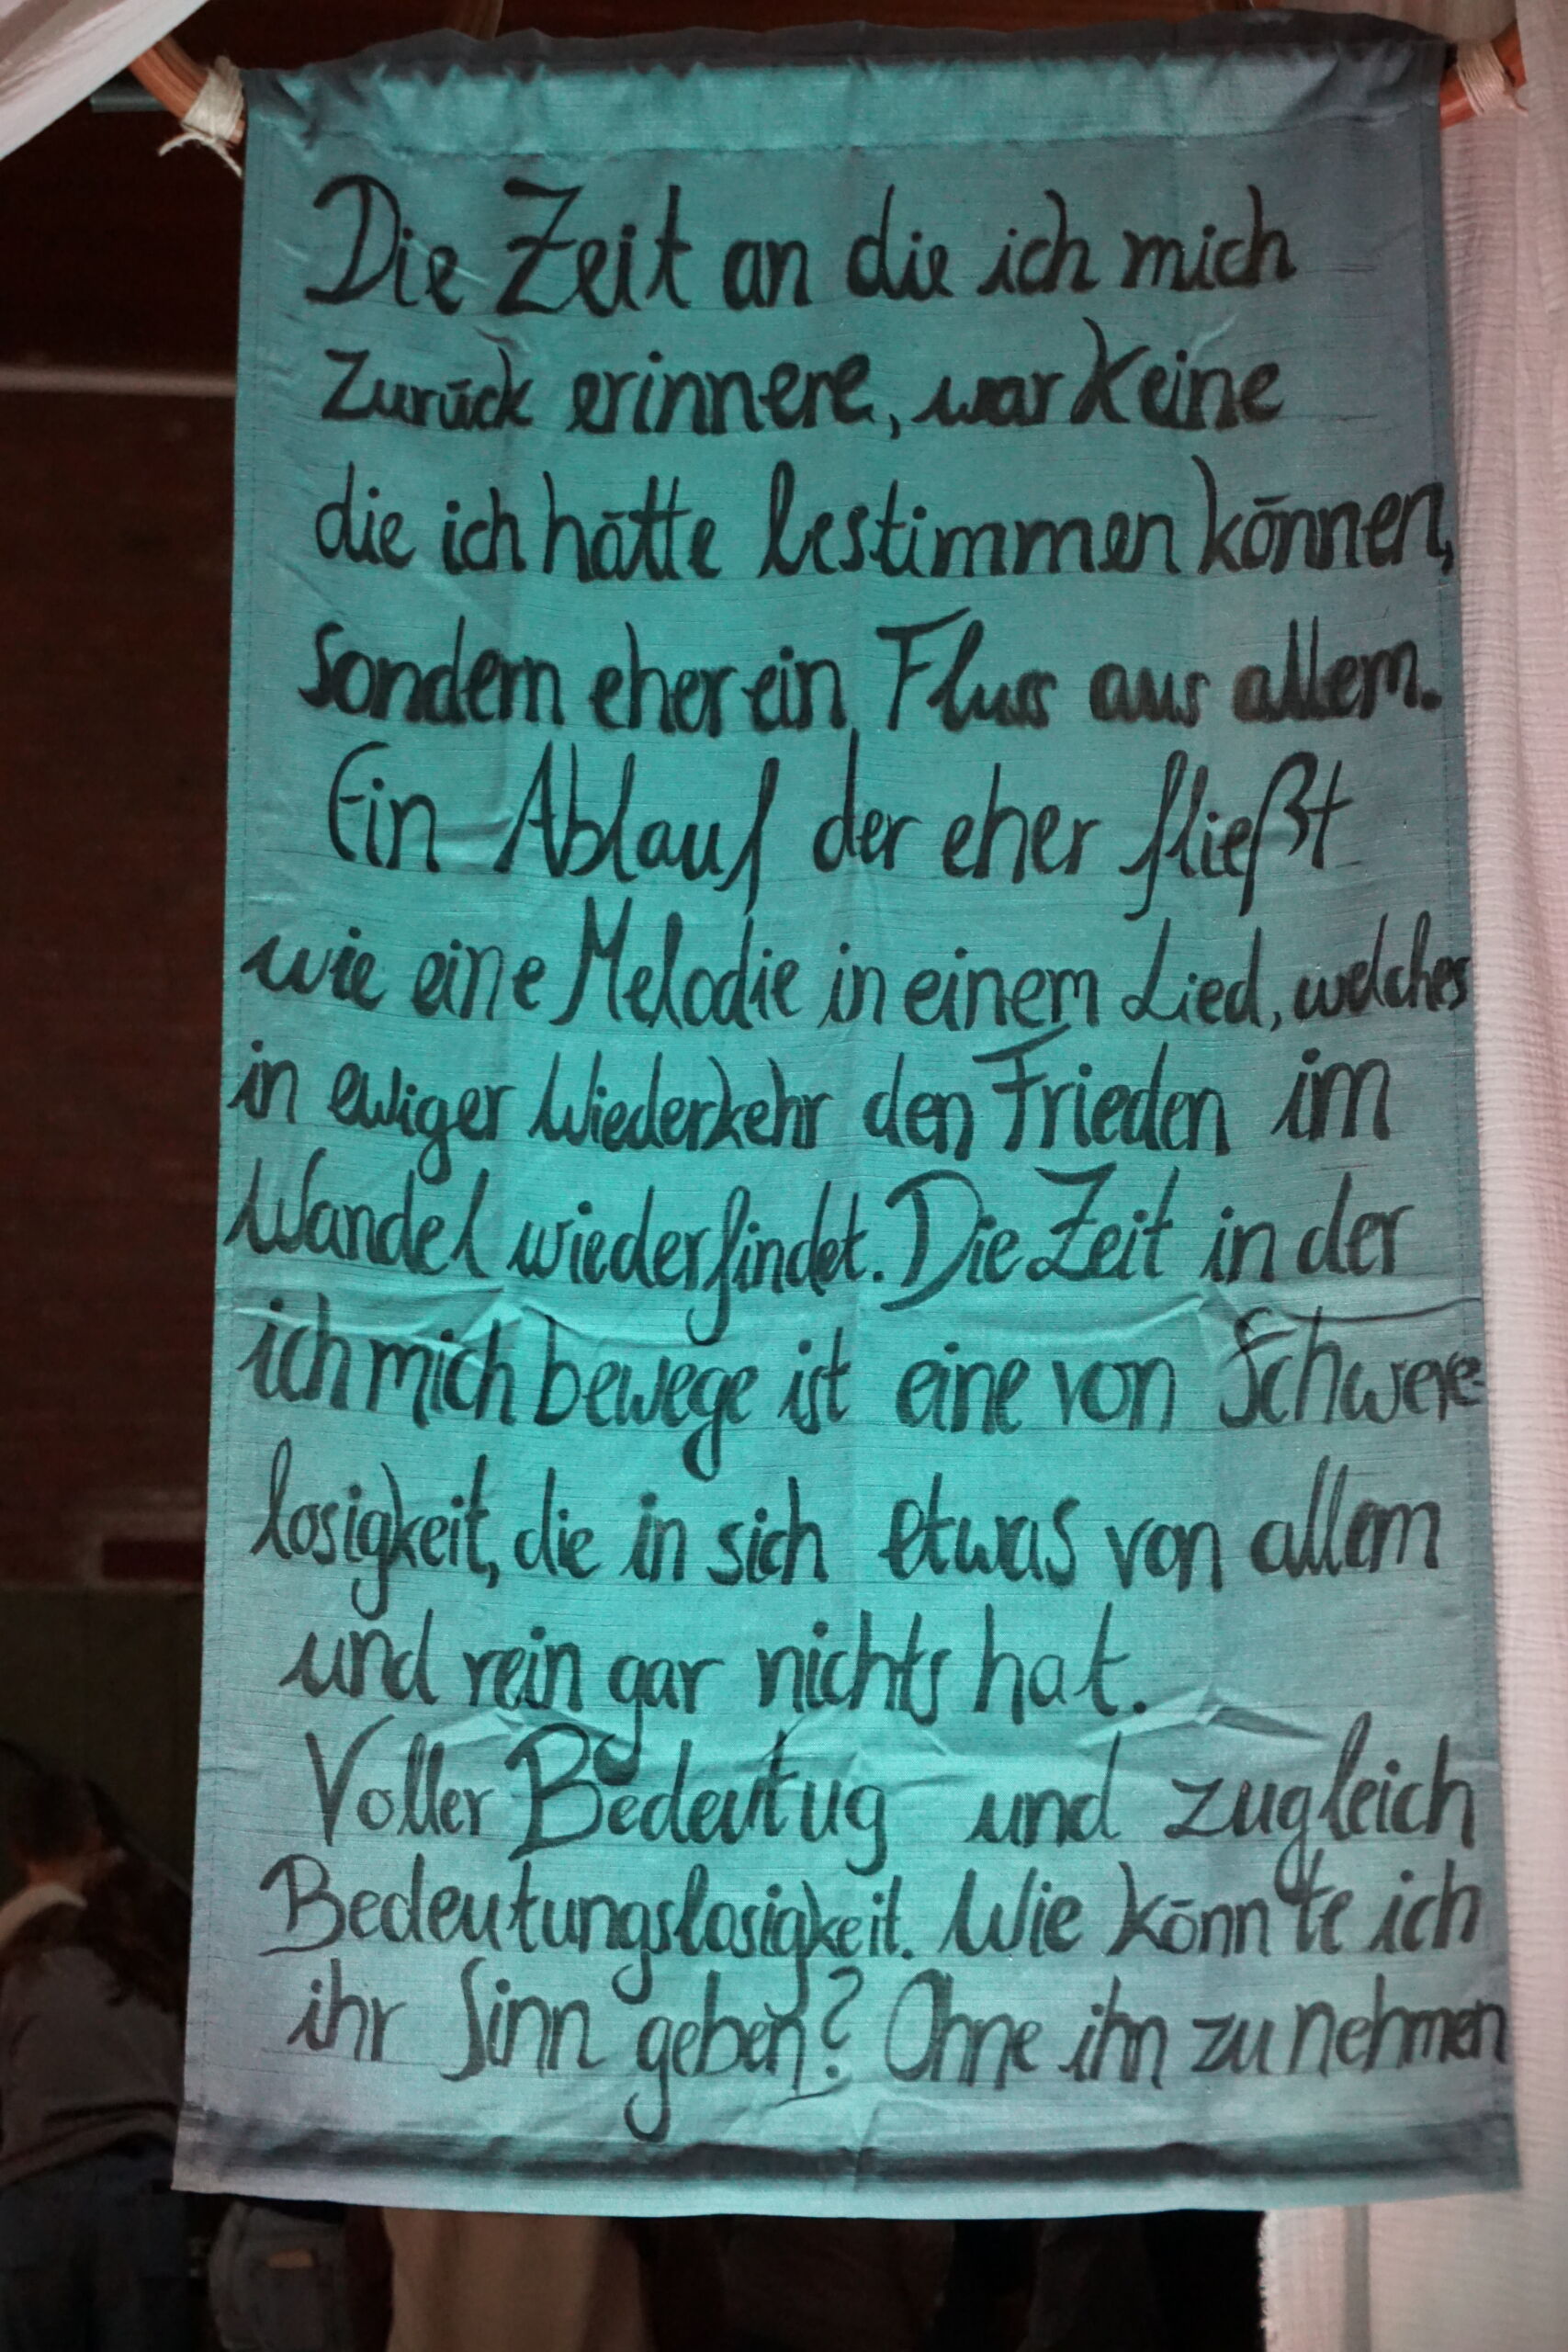 Die Zeit an die ich mich
zurück erinnere, war keine
die ich hätte bestimmen können,
sondern eher ein Fluss aus allem.
Ein Ablauf der eher fließt
wie eine Melodie in einem Lied, welches
in ewiger Wiederkehr den Frieden im
Wandel wiederfindet. Die Zeit in der
ich mich bewege ist eine von Schwere-
losigkeit, die in sich etwas von allem
und rein gar nichts hat.
Voller Bedeutug und zugleich
Bedeutungslosigkeit. Wie könnte ich
ihr Sinn geben? Ohne ihn zu nehmen